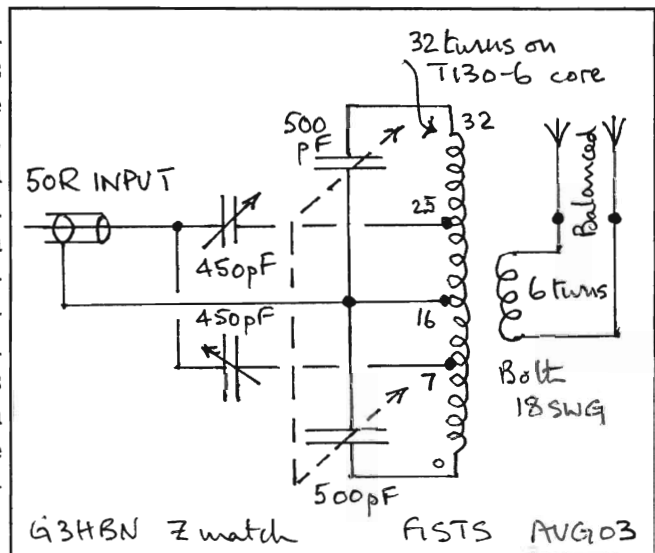 32 turns on
T130-6 core
500
pF
32
50R INPUT
25
Balanced
450pF
6 turns
450pF
16
7
Bolt
18SWG
0
500pF
G3HBN Z match FISTS AUG03